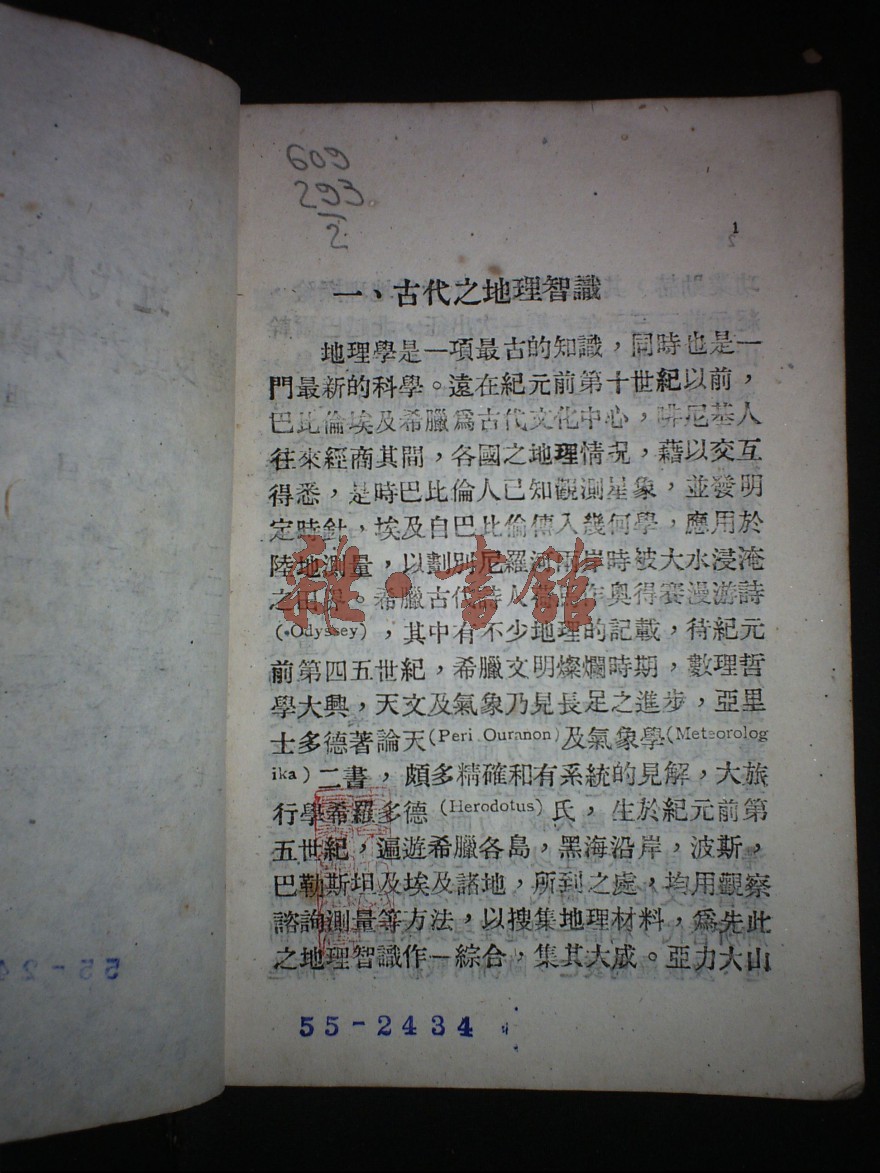 609
293
2
1
一、古代之地理智識
地理學是一項最古的知識，同時也是一
門最新的科學。遠在紀元前第十世紀以前，
巴比倫埃及希臘爲古代文化中心，啡尼基人
往來經商其間，各國之地理情況，藉以交互
得悉，是時巴比倫人已知觀測星象，並發明
定時針，埃及自巴比倫傳入幾何學，應用於
陸地測量，以劃別尼羅河兩岸時被大水浸淹
之田界。希臘古代詩人荷馬作奧得賽漫游詩
(Odyssey)，其中有不少地理的記載，待紀元
前第四五世紀，希臘文明燦爛時期，數理哲
學大興，天文及氣象乃見長足之進步，亞里
士多德著論天(Peri Ouranon)及氣象學(Meteorolog
ika)二書，頗多精確和有系統的見解，大旅
行學希羅多德(Herodotus)氏，生於紀元前第
五世紀，遍遊希臘各島，黑海沿岸，波斯，
巴勒斯坦及埃及諸地，所到之處，均用觀察
諮詢測量等方法，以搜集地理材料，爲先此
之地理智識作一綜合，集其大成。亞力大山
雜·書館
55-2434